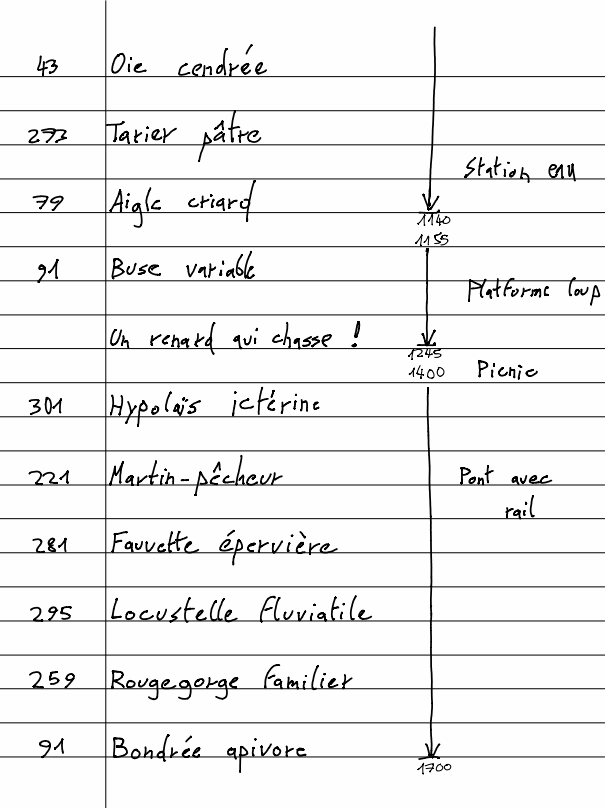 43 Oie cendrée
273 Tarier pâtre
Station eau
79 Aigle criard
1140
1155
91 Buse variable
Platforme loup
Un renard qui chasse !
1245
1400 Picnic
301 Hypolaïs ictérine
221 Martin-pêcheur
Pont avec
rail
281 Fauvette épervière
295 Locustelle fluviatile
259 Rougegorge familier
91 Bondrée apivore
1700